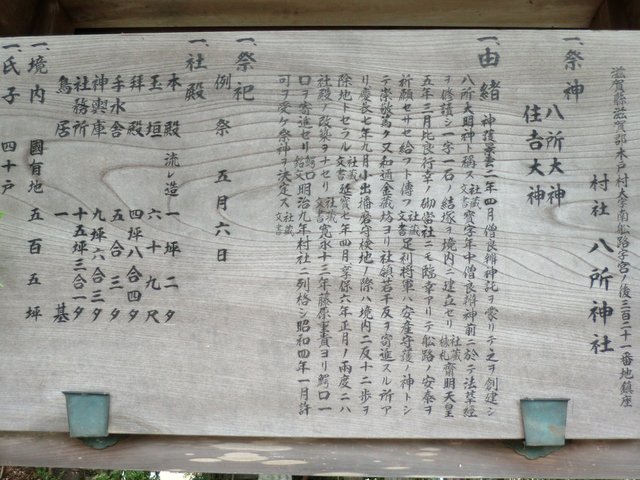 滋賀縣滋賀郡木戸村大字南船路字宮ノ後三百二十一番地鎮座
村社 八所神社
一、祭神 八所大神
住吉大神
一、由緒 神護景雲二年四月僧良辯神託ヲ蒙リテ之ヲ創建シ
八所大明神ト稱ス社蔵文書寶字年中僧良辯神前ニ於テ法華経
ヲ修讀シ一字一石ノ結塚ヲ境内ニ建立セリ社蔵棟札齋明天皇
五年三月比良行幸ノ砌當社ニモ臨幸アリテ船路ノ安泰ヲ
祈願セサセ給フト傳フ社蔵文書足利将軍ハ安産守護ノ神トシ
テ崇敬篤ク又和迩金蔵坊ヨリ社領若干反ヲ寄進スル所ア
リ慶長七年九月小出播磨守検地ノ際ハ境内二反十二歩ヲ
除地トセラル社蔵文書延寶七年四月享保六年正月ノ兩度ニハ
社殿ノ改築ヲナセリ社蔵文書寛永十三年藤原重貴ヨリ鰐口一
口ヲ寄進セリ鰐口銘文明治九年村社ニ列格シ昭和四年一月許
可ヲ受ケ祭神ヲ決定ス社蔵文書
一、祭祀
例祭 五月六日
一、社殿
本殿 流レ造 一坪二夕
玉垣 六十九尺
拝殿 四坪八合四夕
手水舎 五合三夕
神輿庫 九坪六合三夕
社務所 十五坪三合一夕
鳥居 一基
一、境内 國有地 五百五坪
一、氏子 四十戸